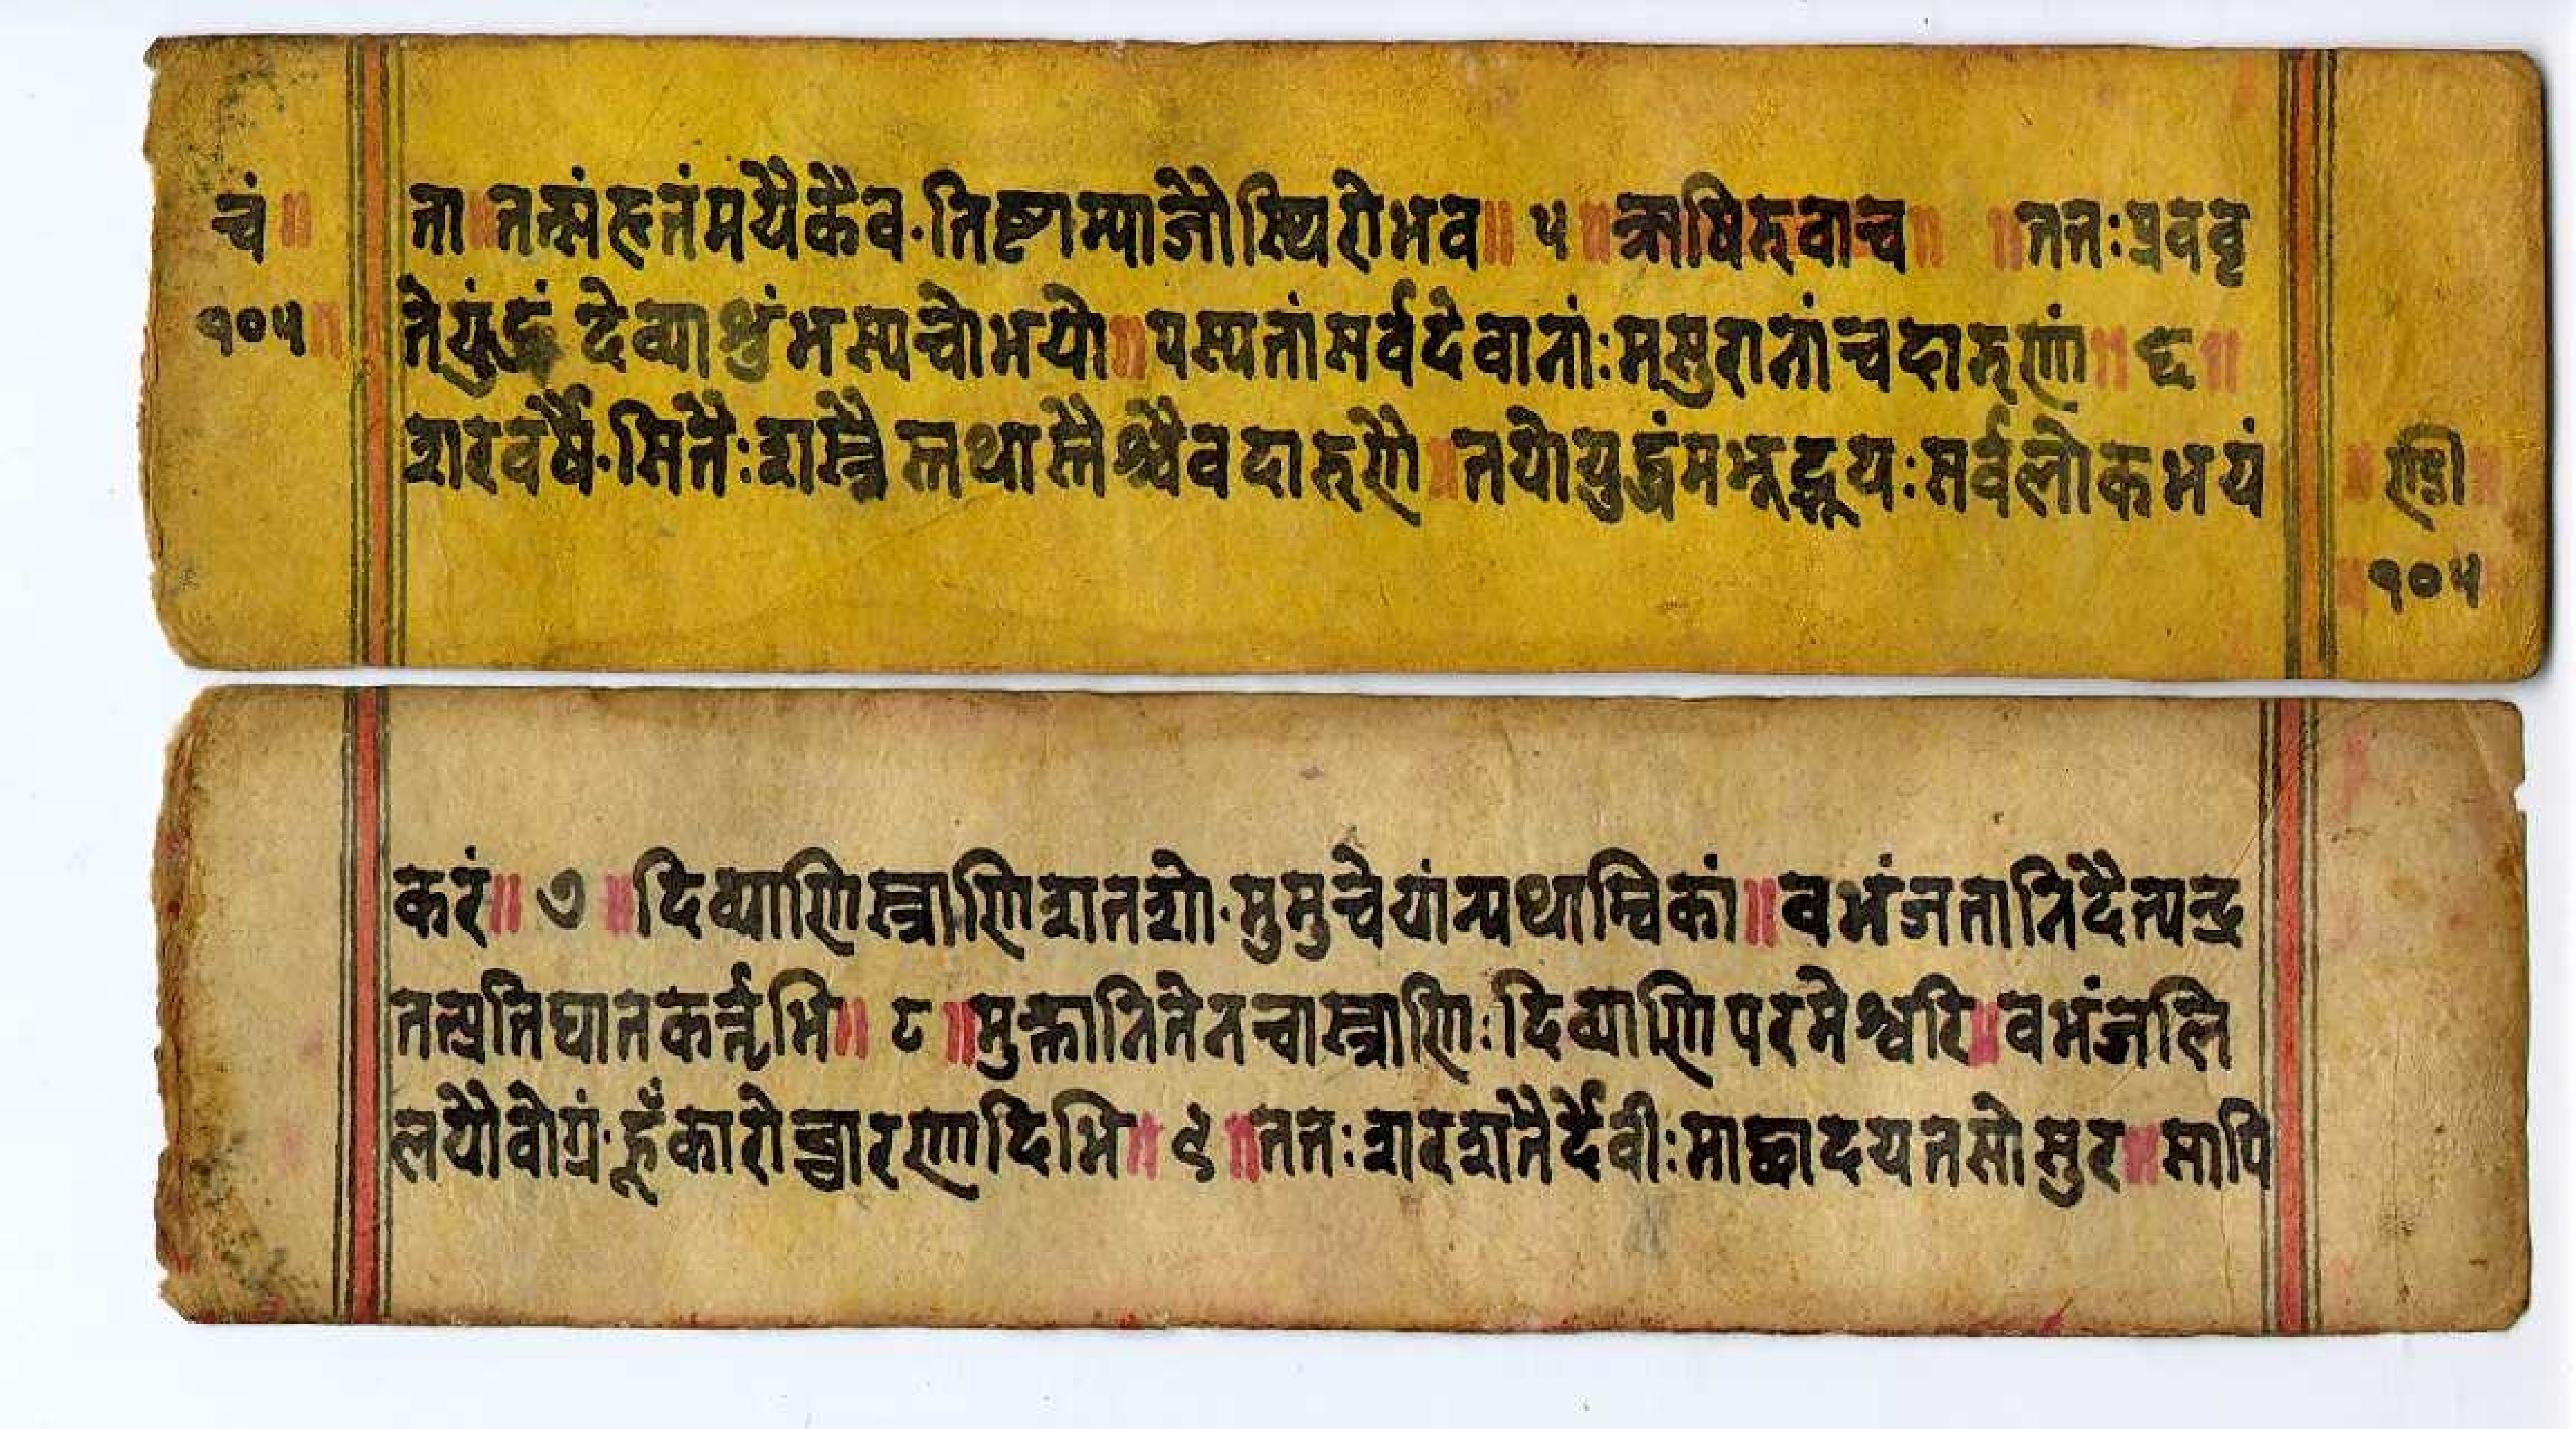 चं॥
१०५॥
ता॥तत्संहृतंमयैकैव·तिष्टाम्याजौस्थिरोभव॥ ५॥ऋषिरुवाच॥ ॥ततःप्रववृ
तेयुंद्धं देव्याशुंभस्यचोभयो॥पस्यतांसर्वदेवानांःमसुरानांचदारुणं॥ ६॥
शरवर्षै·सितैःशस्त्रैस्तथास्त्रैश्चैवदारुणै॥तयोयुद्धंमभूद्भूयःसर्वलोकभयं
॥ण्डी॥
॥१०५
करं॥ ७ ॥दिव्याणिस्त्राणिशतशो·मुमुचेयांन्यथाम्विकां॥वभंजतानिदैत्यन्द्र
तत्प्रतिघातकर्त्तृभि॥ ८ ॥मुक्तानितेनचास्त्राणिःदिव्याणिपरमेश्वरि॥वभंजलि
लयैवोग्रं·हूँकारोच्चारणादिभि॥ ९ ॥ततःशरशतैर्दैवीःमाछादयतसोसुर॥सापि